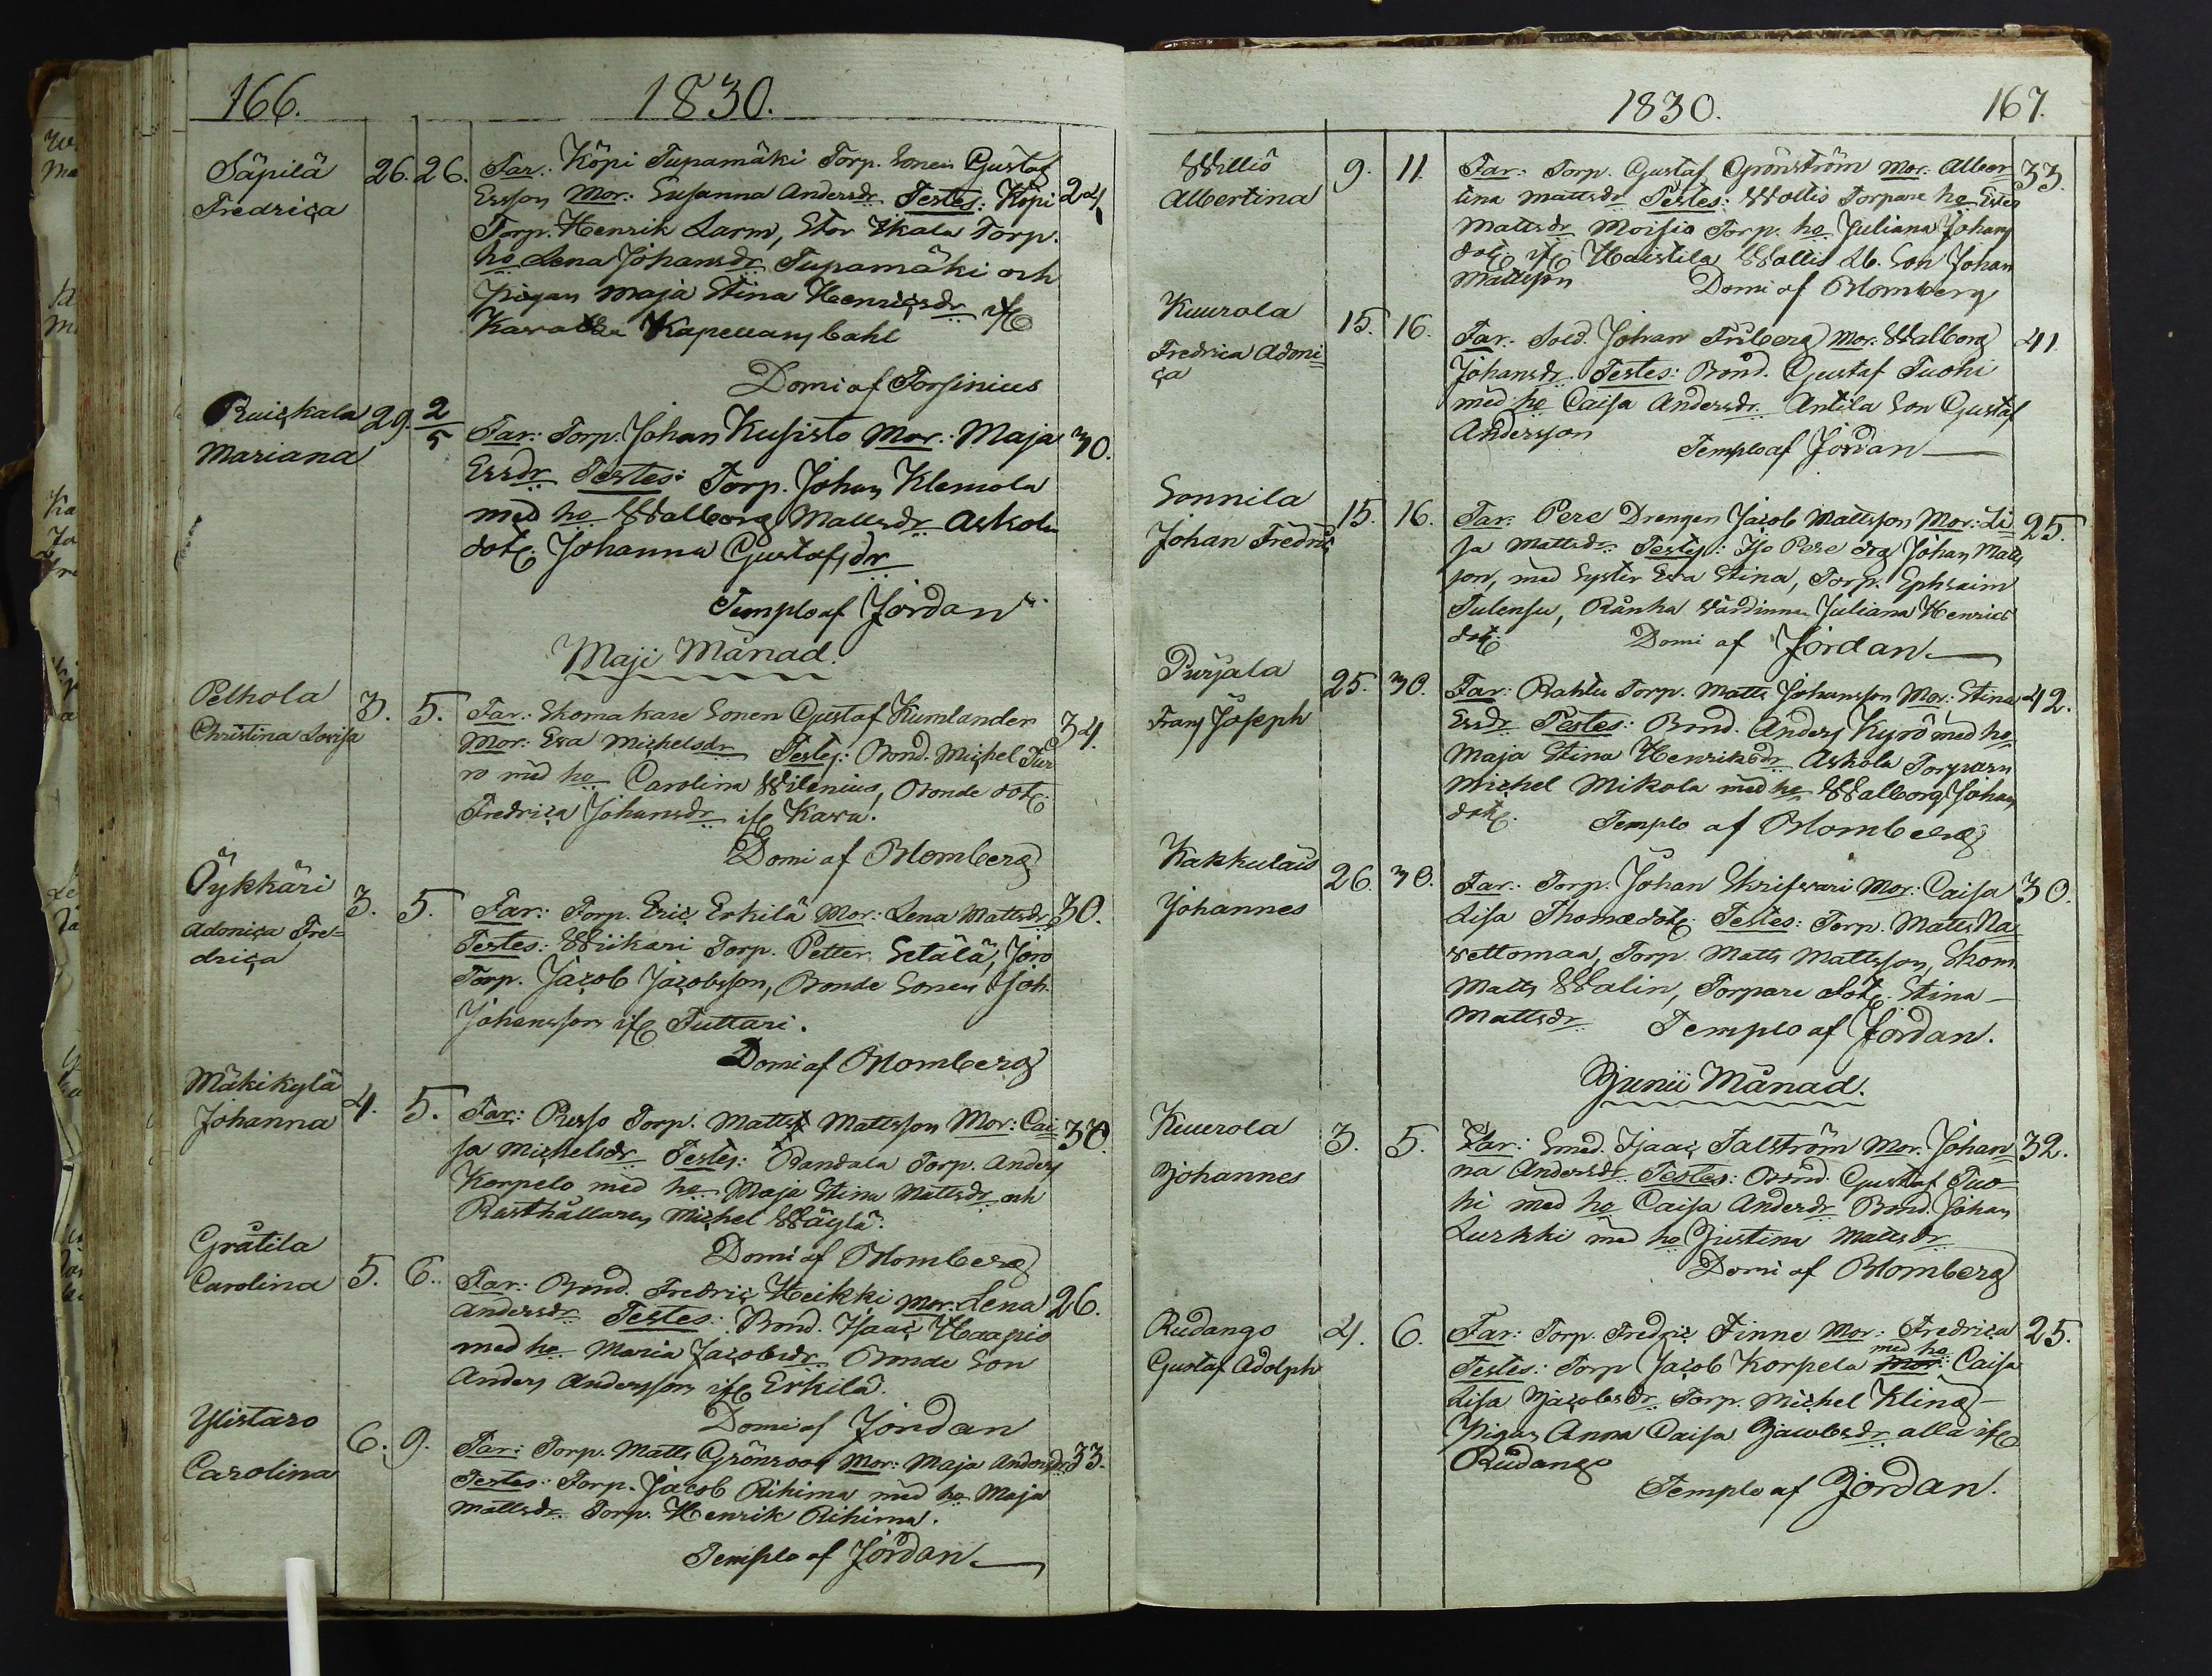 166.
1830.
Säpilä
Fredrica
26. 26.
Far: Köpi Tupamäki Torp. Sonen Gustaf
Ersson Mor: Susanna Andersdr Testes: Köpi
24
Torp. Henrik Larm, Stor Ikala Torp.
ho Lena Johansdr Tupamäki och
Pigan Maja Stina Henricsdr
Kapellans
Domi af Forsinius
Ruickala
Mariana
29. 2/5
Far: Torp. Johan Kusisto Mor: Maja
30.
Ersdr Testes: Torp. Johan Klemola
med ho Walborg Mattsdr Askola
dotr. Johanna Gustafsdr
Templo af Jordan
Maji Månad.
Pelhola
Christina Lovisa
3. 5.
Far: Skomakare Sonen Gustaf Kumlander
34.
Mor: Eva Michelsdr Testes: Bond. Michel Tur
ro med ho Carolina Wilenius, Bonde dotr.
Fredrica Johansdr ifr Karra.
Domi af Blomberg
Öykkäri
Adonica Fre=
drica
3. 5.
Far: Torp. Eric Erkilä Mor: Lena Mattsdr
30.
Testes: Wiikari Torp. Petter Setälä, Joro
Torp. Jacob Jacobsson, Bonde Sonen Joh.
Johansson ifr Tuttari.
Domi af Blomberg
Mäkikylä
Johanna
4. 5.
Far: Russo Torp. Matts Mattsson Mor: Cai
30.
sa Michelsdr Testes: Bandala Torp. Anders
Korpelo med ho Maja Stina Mattsdr och
Rusthållaren Michel Wäylä.
Domi af Blomberg
Gråtila
Carolina
5. 6.
Far: Bond. Fredric Heikki Mor: Lena
26.
Andersdr Testes: Bond. Isaac Haapio
med ho Maria Jacobsdr Bonde Son
Anders Andersson ifr Erkilä.
Domi af Jordan
Ylistaro
Carolina
6. 9.
Far: Torp. Matts Grönroos Mor: Maja Andersdr
33.
Testes: Torp. Jacob Rihima med ho Maja
Mattsdr Torp. Henrik Rihima.
Templo af Jordan
1830.
167.
Willio
Albertina
9. 11.
Far: Torp. Gustaf Grönström Mor: Alber
33.
tina Mattsdr Testes: Wollis Torpare ho
Mattsdr Moisio Torp. ho Juliana Johans
dotr ifr Haistila Wallis Son Johan
Mattsson
Domi af Blomberg
Kuurola
Fredrica Adoni
ca
15. 16.
Far: Sold. Johan Friberg Mor: Walborg
41.
Johansdr Testes: Bond. Gustaf Tuohi
med ho Caisa Andersdr Antila Son Gustaf
Andersson
Templo af Jordan
Sonnila
Johan Fredric
15. 16.
Far: Pere Drengen Jacob Mattsson Mor: Li
25.
sa Mattsdr Testes: Iso Pere drg Johan Matts
son, med Syster Eva Stina, Torp. Ephraim
Tulensu, Rånka Wärdinnan Juliana Henrics
dotr.
Domi af Jordan
Purjala
Frans Joseph
25. 30.
Far: Rahtu Torp. Matts Johansson Mor: Stina
42.
Ersdr Testes: Bond. Anders Kyrö med ho
Maja Stina Henriksdr Askola Torparn
Michel Mikola med ho Walborg Johans
dotr.
Templo af Blomberg
Kakkulais
Johannes
26. 30.
Far: Torp. Johan Skrifvari Mor: Caisa
30.
Lisa Thomædotr. Testes: Torp. Matts Na
vettomaa, Torp. Matts Mattsson, Skom.
Matts Walin, Torpare dotr. Stina
Mattsdr
Templo af Jordan.
Junii Månad.
Kuurola
Johannes
3. 5.
Far: Smed. Isaac Talström Mor: Johan
32.
na Andersdr Testes: Bond. Gustaf Tuo
hi med ho Caisa Andersdr Bond. Johan
Lurkki med ho Justina Mattsdr
Domi af Blomberg
Rudango
Gustaf Adolph
4. 6.
Far: Torp. Fredric Finne Mor: Fredrica
25.
med ho
Testes: Torp Jacob Korpela Mor: Caisa
Lisa Jacobsdr Torp. Michel Kling
Pigan Anna Caisa Jacobsdr alla ifr
Rudango
Templo af Jordan.